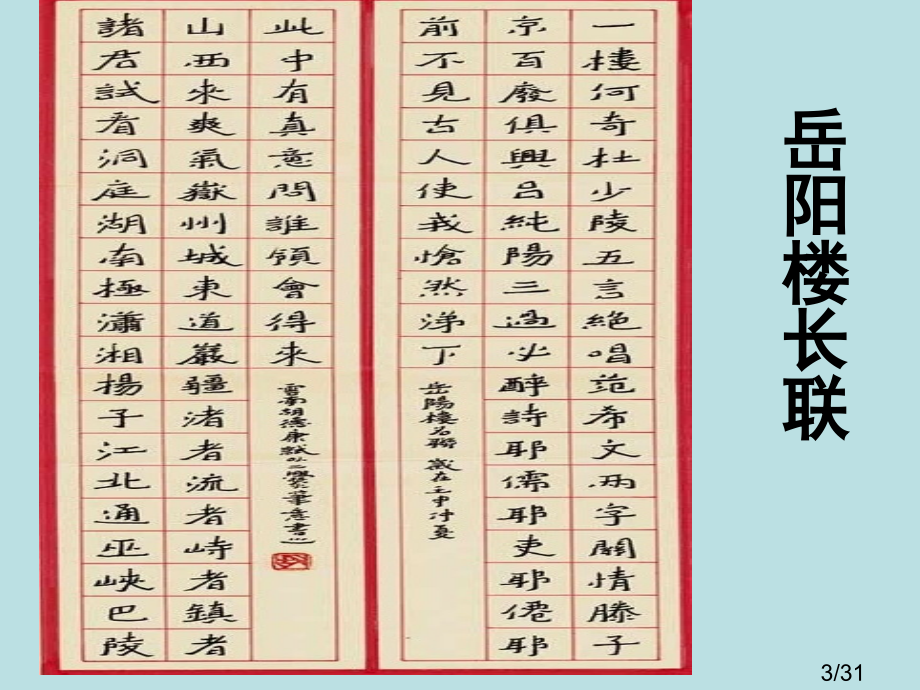 岳阳楼长联
一樓何奇杜少陵五言絕唱范希文兩字關情滕子
京百廢俱興呂純陽三過必醉詩耶儒耶吏耶僊耶
前不見古人使我愴然涕下
岳陽樓名聯 歲在壬申仲夏
諸君試看洞庭湖南極瀟湘楊子江北通巫峽巴陵
山西來爽氣嶽州城東道巖疆渚者流者峙者鎮者
此中有真意問誰領會得來
雲南胡德康試以二爨筆意書
3/31